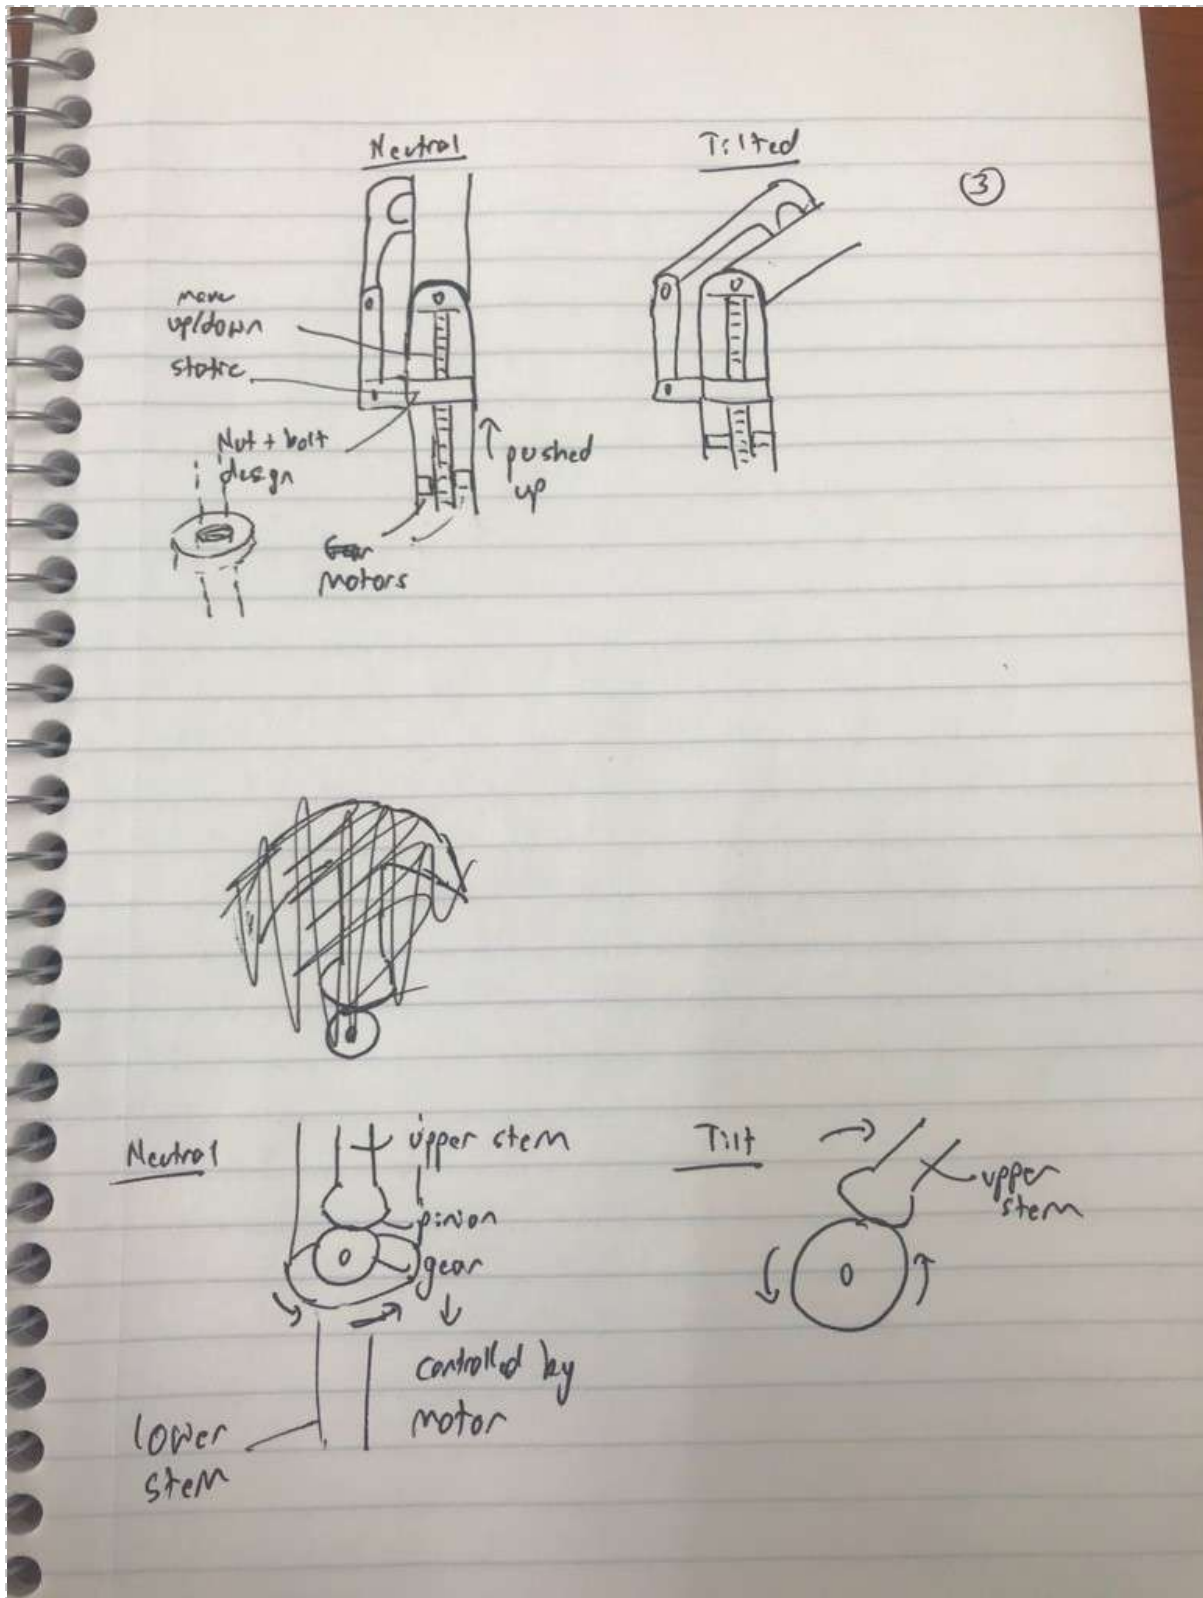 Neutral
Tilted
3
move
up/down
static
Nut + bolt
design
pushed
up
motors
Neutral
upper stem
pinion
gear
controlled by
motor
lower
stem
Tilt
upper
stem